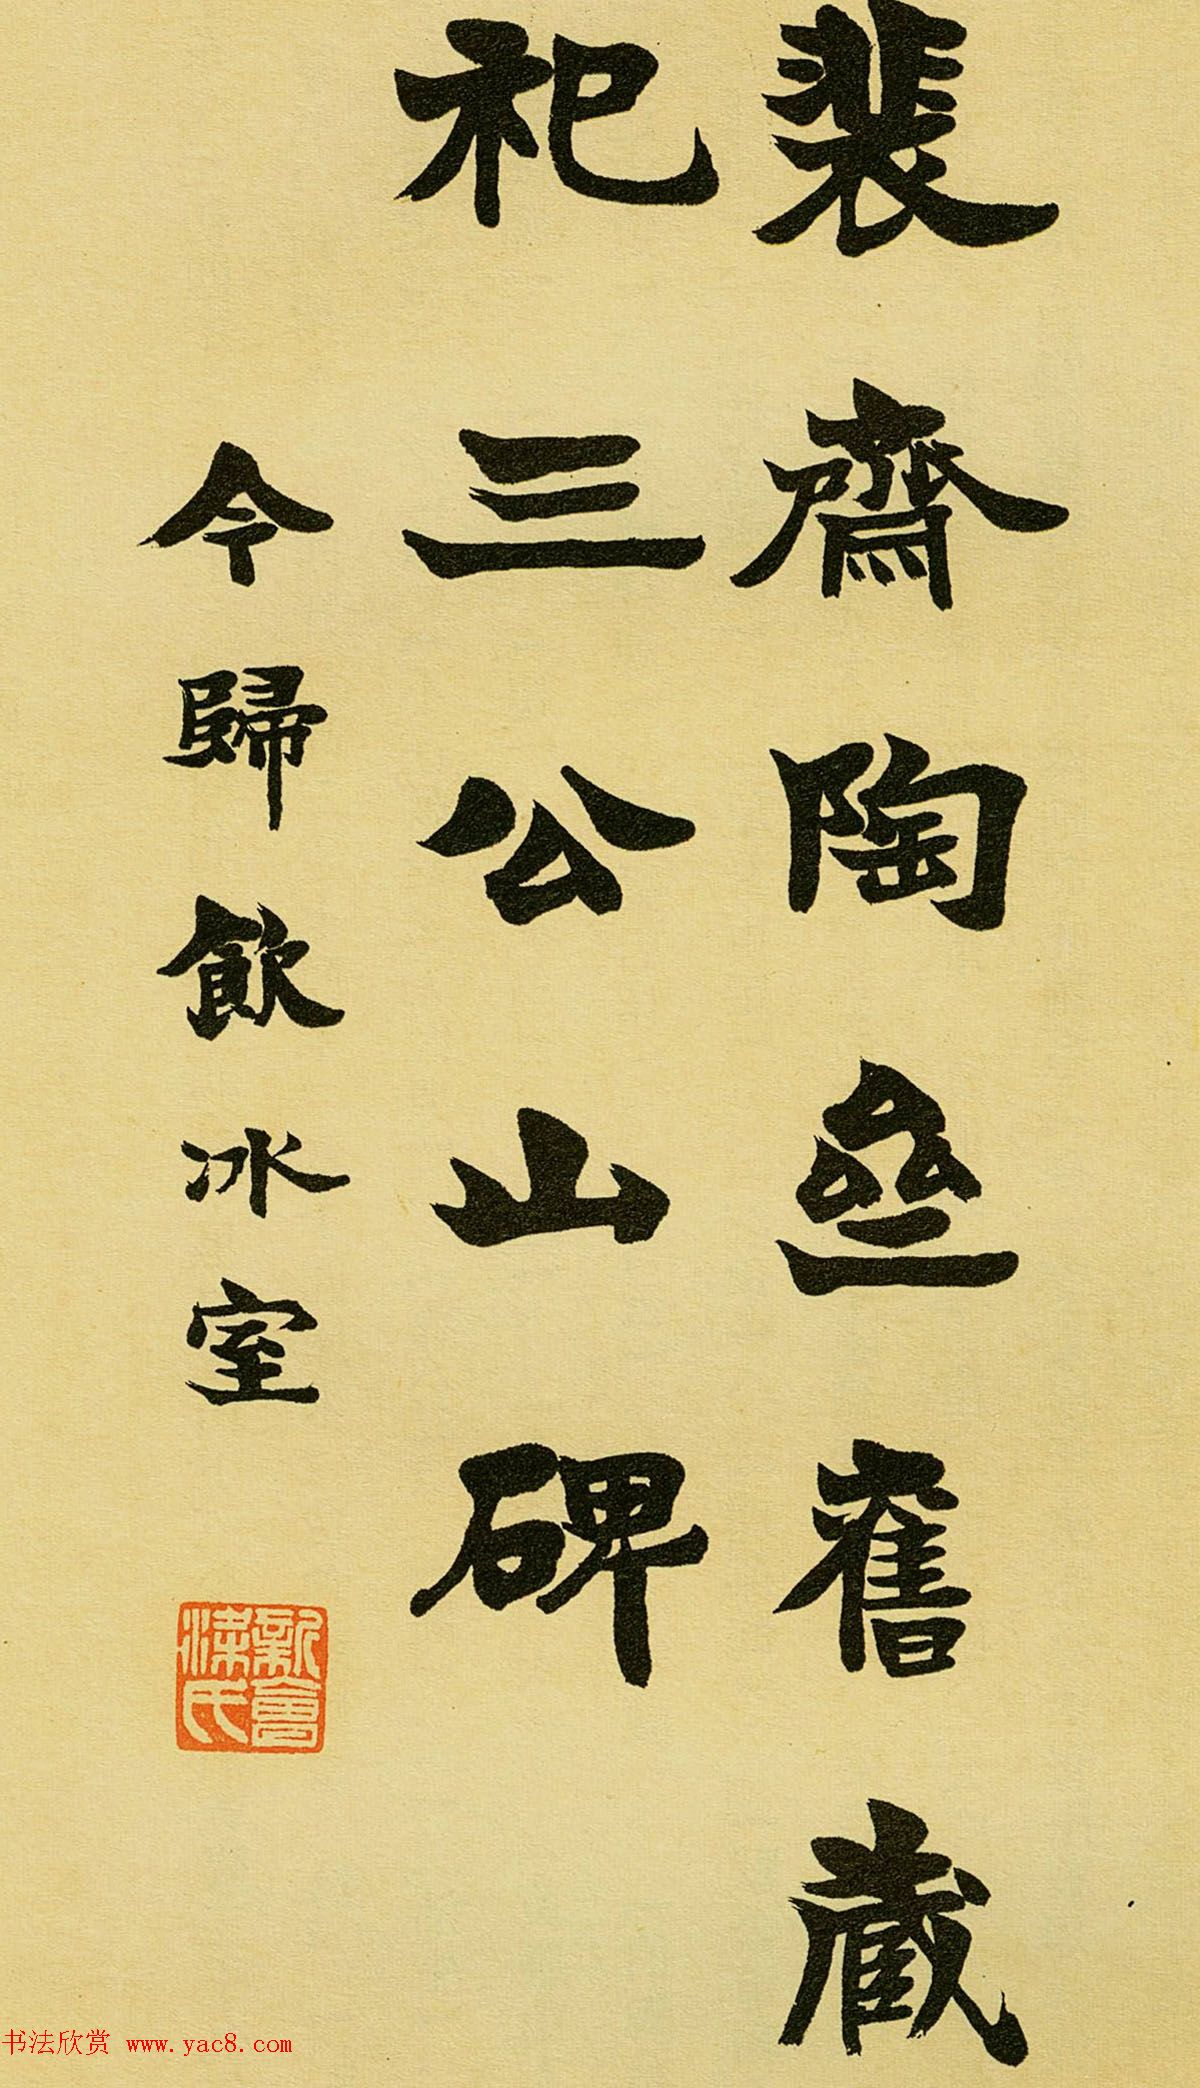 裴齋陶壘舊藏
祀三公山碑
今歸飲冰室
新會
梁氏
书法欣赏 www.yac8.com